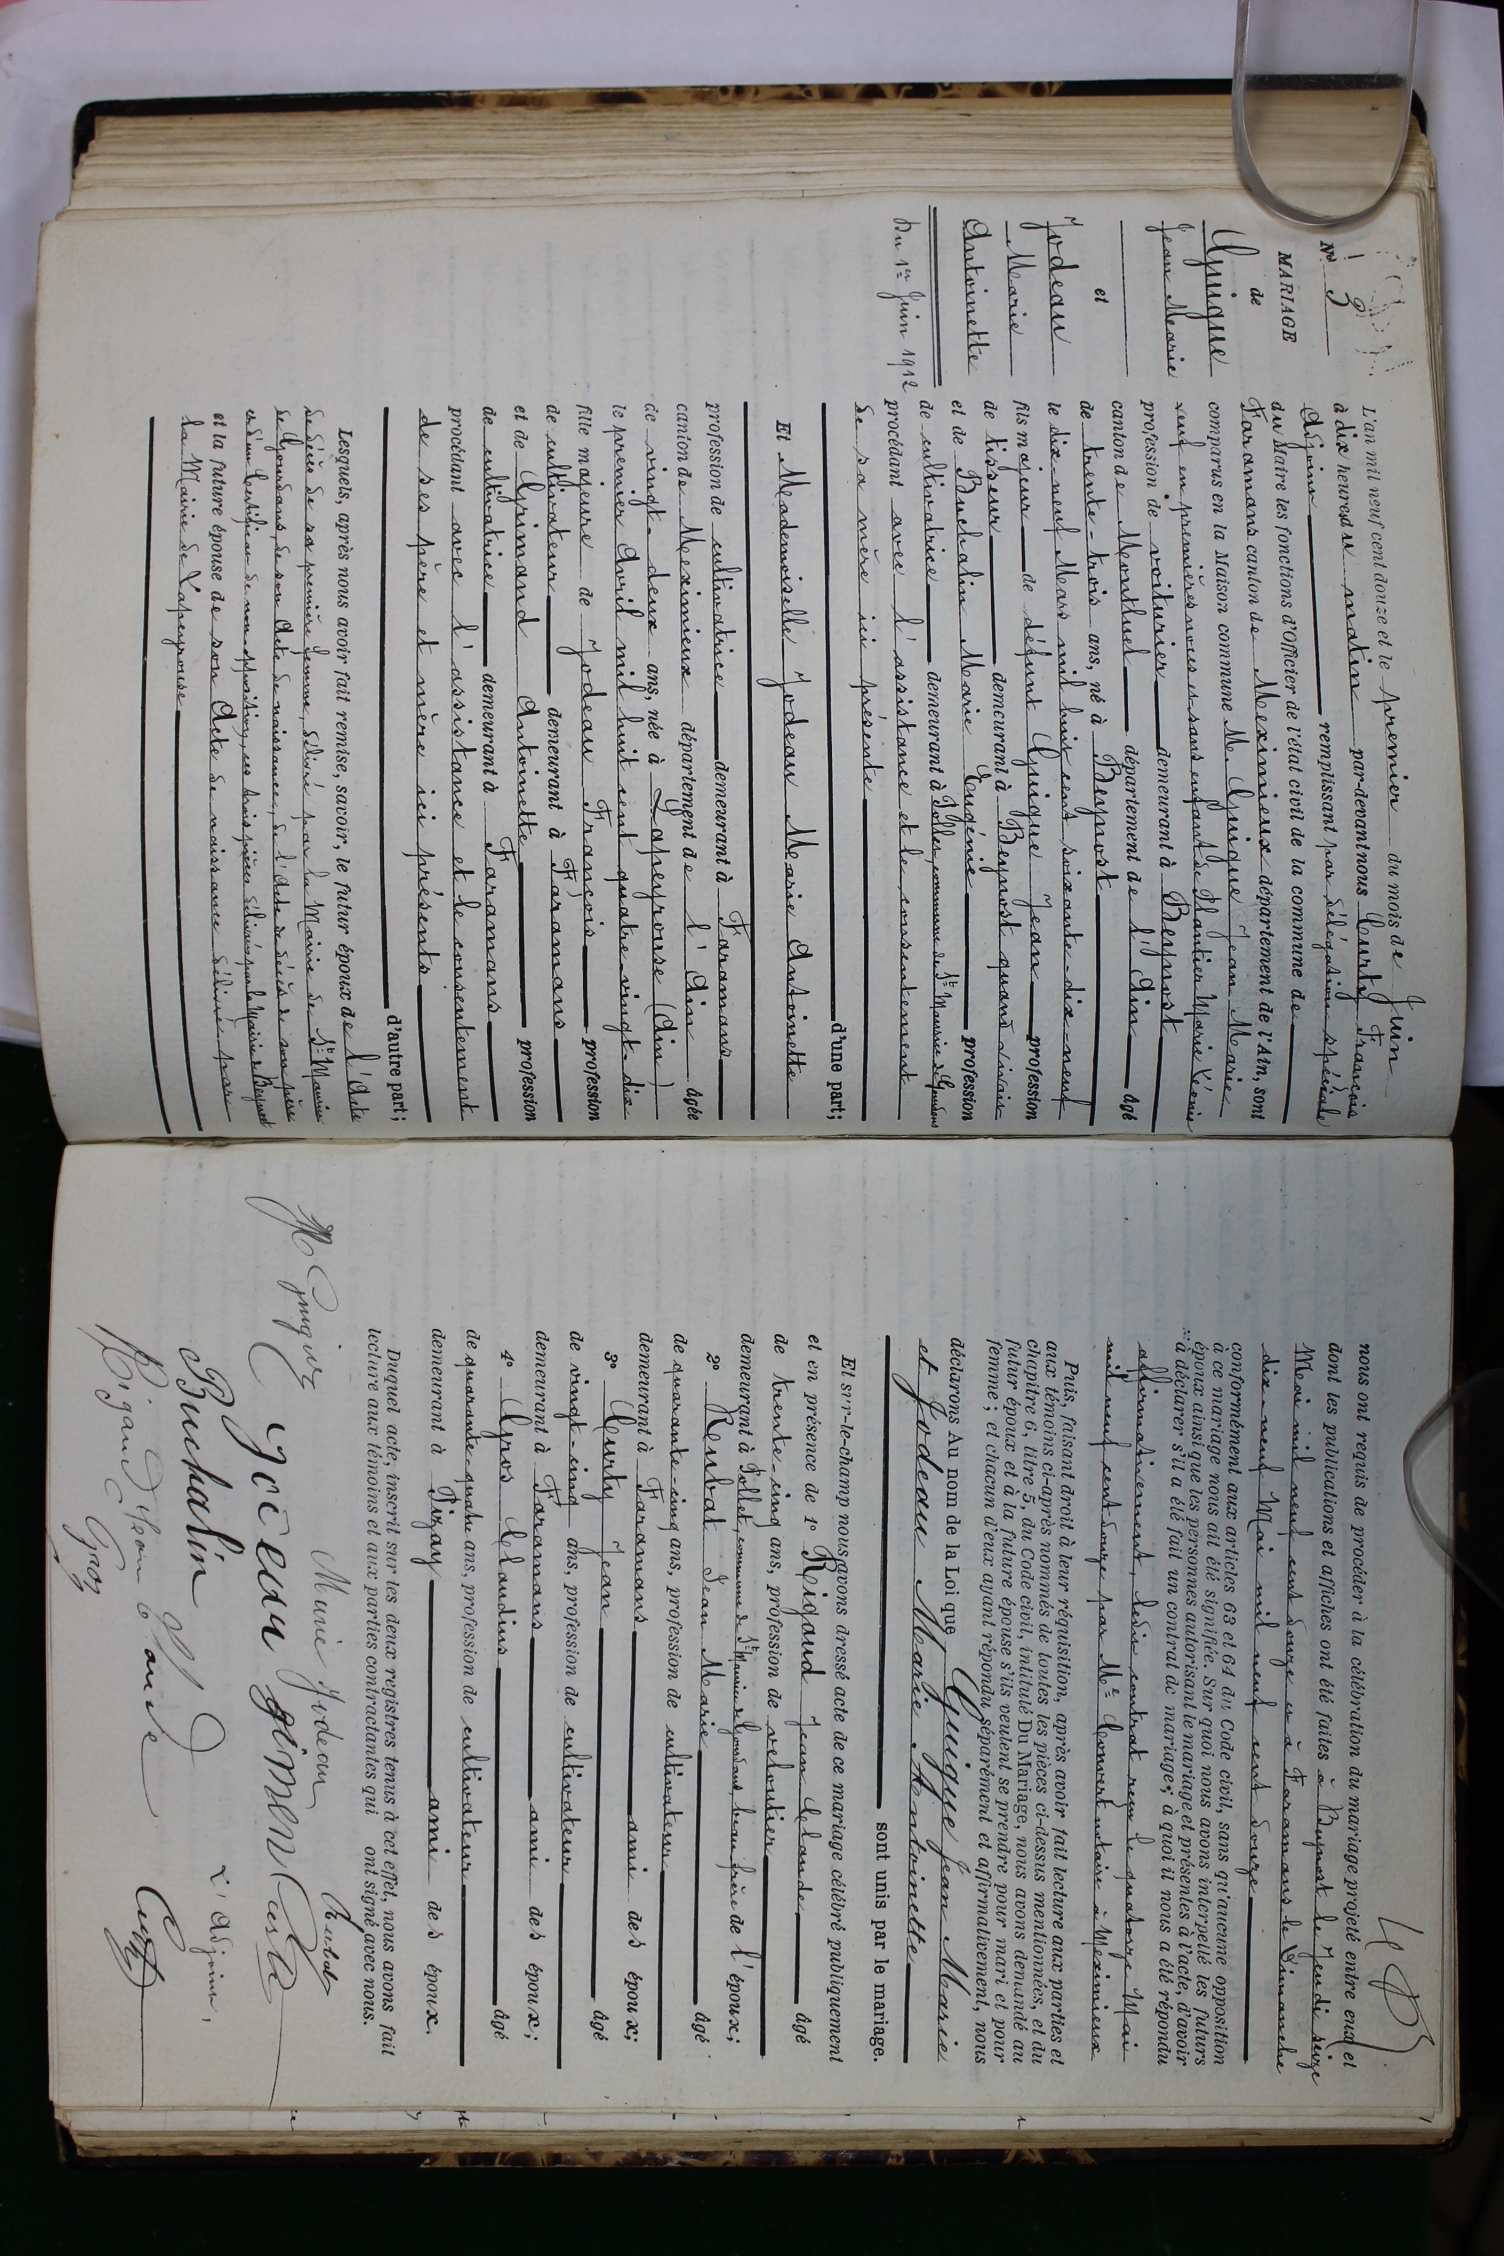 No 3
MARIAGE
de
Guigue
Jean Marie
et
Jodeau
Marie
Antoinette
Du 1er Juin 1912
L'an mil neuf cent douze et le premier du mois de Juin
à dix heures du matin par-devant nous Curty François
Adjoint remplissant par délégation spéciale
du Maire les fonctions d'Officier de l'état civil de la commune de
Faramans canton de Meximieux département de l'Ain, sont
comparus en la Maison commune M. Guigue Jean Marie
veuf en premières noces et sans enfant de Plantier Marie Léonie
profession de voiturier demeurant à Beynost
canton de Montluel département de l'Ain âgé
de trente-trois ans, né à Beynost
le dix-neuf Mars mil huit cent soixante-dix-neuf
fils majeur de défunt Guigue Jean profession
de tisseur demeurant à Beynost quand vivait
et de Buchalin Marie Eugénie profession
de cultivatrice demeurant à Pollet, commune de St Maurice de Gourdans
procédant avec l'assistance et le consentement
de sa mère ici présente
d'une part;
Et Mademoiselle Jodeau Marie Antoinette
profession de cultivatrice demeurant à Faramans
canton de Meximieux département de l'Ain âgée
de vingt-deux ans, née à Lapeyrouse (Ain)
le premier Avril mil huit cent quatre-vingt-dix
fille majeure de Jodeau François profession
de cultivateur demeurant à Faramans
et de Grimand Antoinette profession
de cultivatrice demeurant à Faramans
procédant avec l'assistance et le consentement
de ses père et mère ici présents
d'autre part;
Lesquels, après nous avoir fait remise, savoir, le futur époux de l'Acte
de décès de sa première femme, délivré par la Mairie de St Maurice
de Gourdans, de son Acte de naissance, de l'Acte de décès de son père
et d'un Certificat de non opposition, ces trois pièces délivrées par la Mairie de Beynost
et la future épouse de son Acte de naissance délivré par
la Mairie de Lapeyrouse
nous ont requis de procéder à la célébration du mariage projeté entre eux et
dont les publications et affiches ont été faites à Beynost le Jeudi seize
Mai mil neuf cent douze et à Faramans le Dimanche
dix-neuf Mai mil neuf cent douze
conformément aux articles 63 et 64 du Code civil, sans qu'aucune opposition
à ce mariage nous ait été signifiée. Sur quoi nous avons interpellé les futurs
époux ainsi que les personnes autorisant le mariage et présentes à l'acte, d'avoir
à déclarer s'il a été fait un contrat de mariage; à quoi il nous a été répondu
affirmativement, ledit contrat reçu le quatorze Mai
mil neuf cent douze par Me Convert notaire à Meximieux
Puis, faisant droit à leur réquisition, après avoir fait lecture aux parties et
aux témoins ci-après nommés de toutes les pièces ci-dessus mentionnées, et du
chapitre 6, titre 5, du Code civil, intitulé Du Mariage, nous avons demandé au
futur époux et à la future épouse s'ils veulent se prendre pour mari et pour
femme; et chacun d'eux ayant répondu séparément et affirmativement, nous
déclarons Au nom de la Loi que Guigue Jean Marie
et Jodeau Marie Antoinette
sont unis par le mariage.
Et sur-le-champ nous avons dressé acte de ce mariage célébré publiquement
et en présence de 1° Rigaud Jean Claude âgé
de trente-cinq ans, profession de veloutier
demeurant à Pollet, commune de St Maurice de Gourdans, beau frère de l'époux;
2° Rubat Jean Marie âgé
de quarante-cinq ans, profession de cultivateur
demeurant à Faramans ami des époux;
3° Curty Jean âgé
de vingt-cinq ans, profession de cultivateur
demeurant à Faramans ami des époux;
4° Gros Claudius âgé
de quarante-quatre ans, profession de cultivateur
demeurant à Pizay ami des époux.
Duquel acte, inscrit sur les deux registres tenus à cet effet, nous avons fait
lecture aux témoins et aux parties contractantes qui ont signé avec nous.
Marie Jodeau
Rubat
Buchalin
L'Adjoint,
Curty